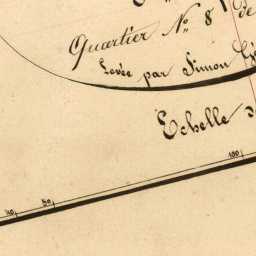 Quartier N.º 8 de
Levée par Simon
Echelle
40 50 100